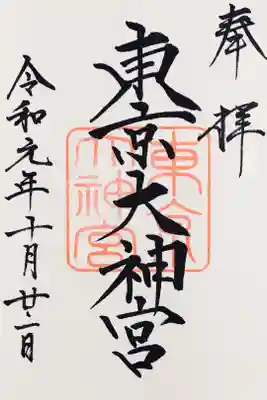 奉拝
東京大神宮
令和元年十月廿二日
東京
大神宮